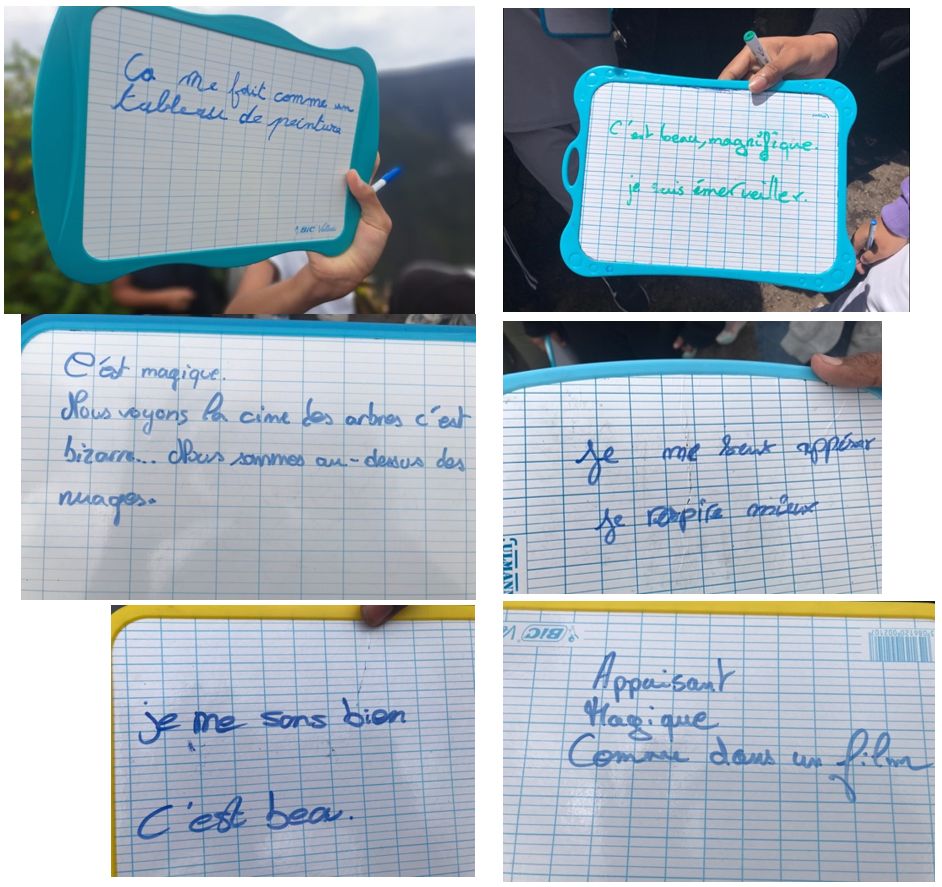 Ca me fait comme un
tableau de peinture
BIC Velleda
C'est beau, magnifique.
je suis émerveiller.
C'est magique.
Nous voyons la cime des arbres c'est
bizarre... Nous sommes au-dessus des
nuages.
Je me appéser
Je respire mieux
ULMANN
je me sans bien
C'est beau.
BIC
Appaisant
Magique
Comme dans un film